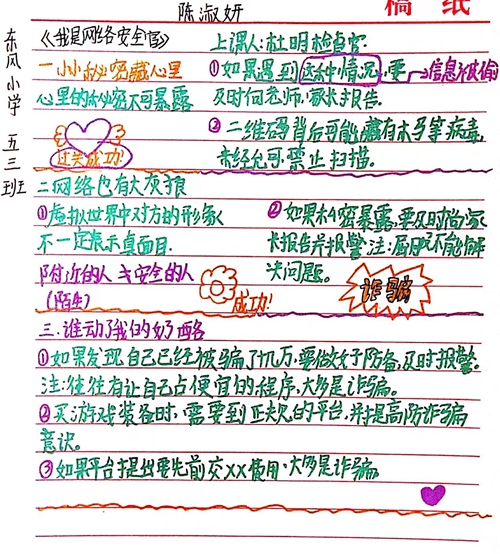 稿 纸
陈淑妍
东风小学 五三班
《我是网络安全官》
上课人:杜明检察官
一小小秘密藏心里
①如果遇到这种情况,要→信息被偷
心里的秘密不可暴露
及时向老师,家长报告.
②二维码背后可能藏有木马等病毒,
过关成功!
未经允可,禁止扫描.
二网络也有大灰狼
①虚拟世界中对方的形象
②如果秘密暴露,要及时告家
不一定表示真面目.
长报告并报警.注:屈服不能解
附近的人≠安全的人
决问题。
(陌生)
成功!
诈骗
三.谁动了我的奶酪
①如果发现自己已经被骗了几万,要做好防备,及时报警.
注:往往有让自己占便宜的程序,大多是诈骗。
②买游戏装备时,需要到正规的平台,并提高防诈骗
意识。
③如果平台提出要先前交XX使用.大多是诈骗